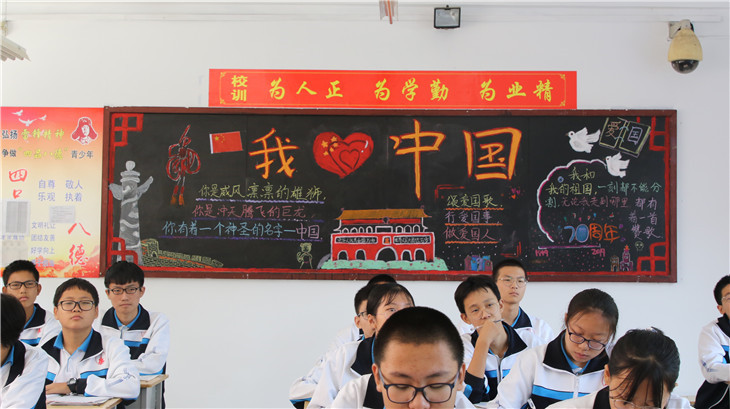 校训 为人正 为学勤 为业精
弘扬
争做 青少年
自尊 敬人
乐观 执着
文明礼让
团结友善
好学向上
八德
我 中国
你是威风凛凛的雄狮,
你是冲天腾飞的巨龙,
你有着一个神圣的名字——中国
爱国歌
行爱国事
做爱国人
爱国
我和
我的祖国,一刻都不能分
割,无论我走到哪里 都有
一首
赞歌
70周年
1949 2019